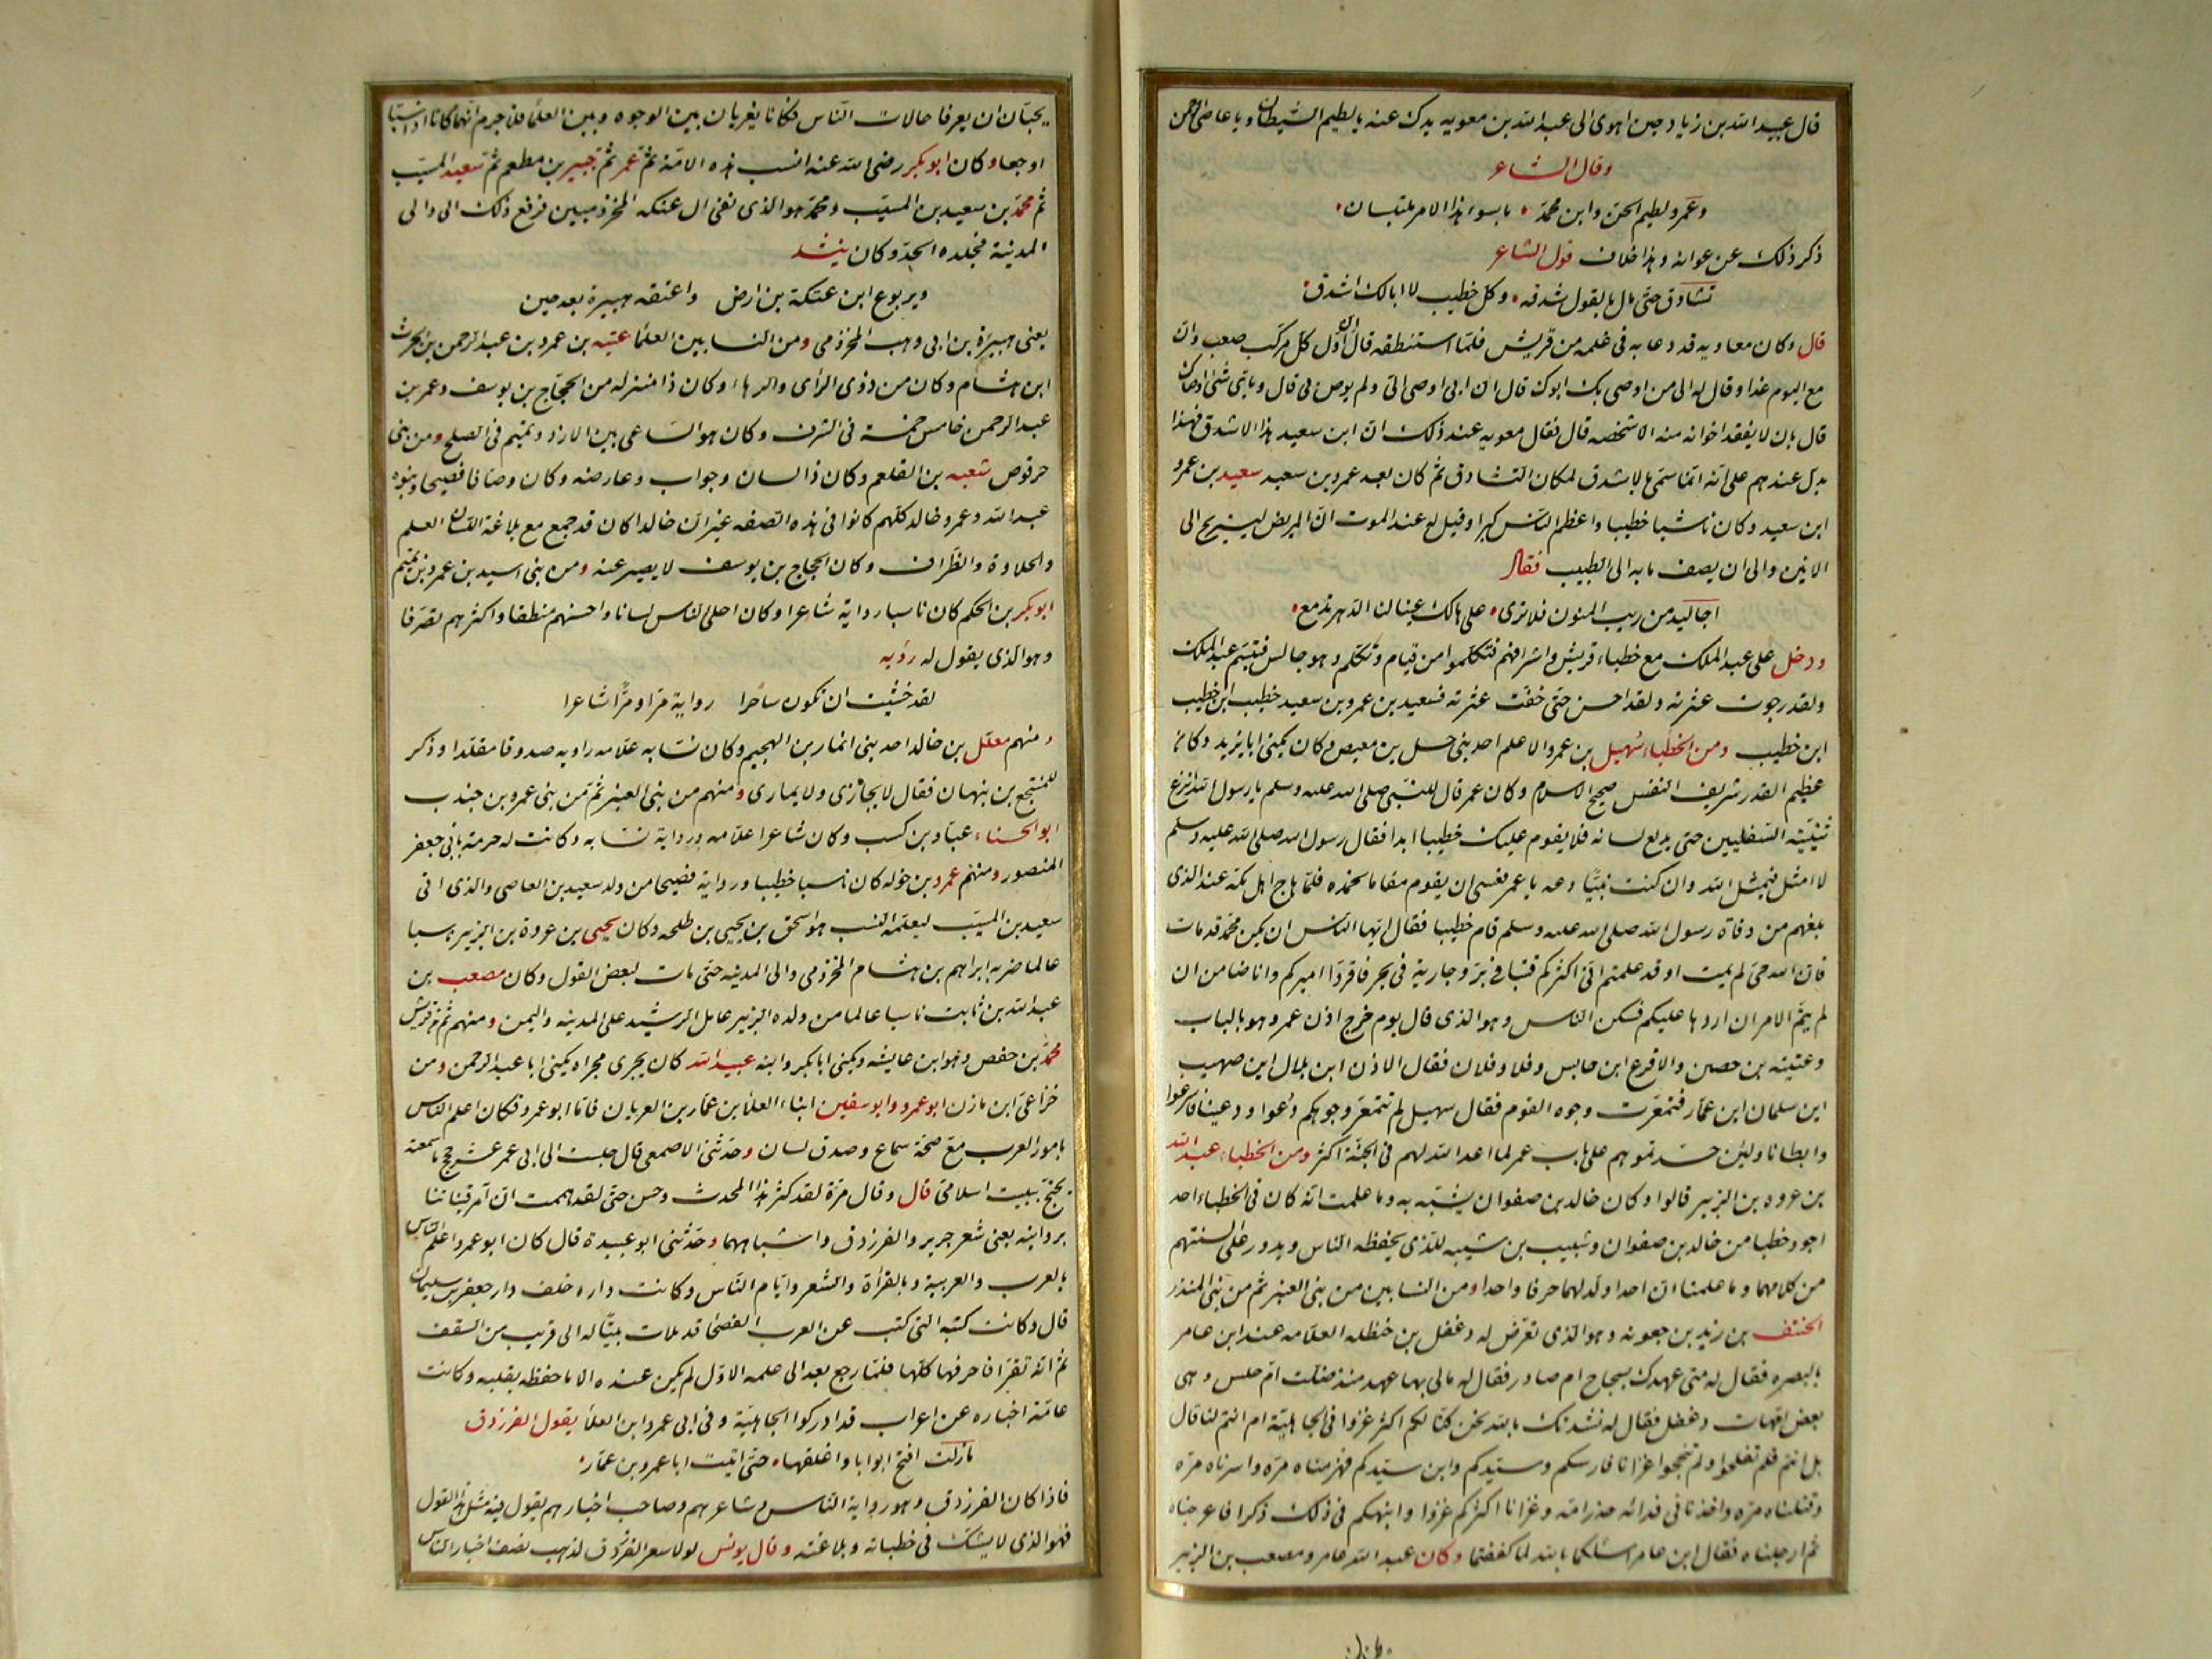 قال عبيد الله بن زياد حين اهوى الى عبد الله بن معويه يدك عنه يا لطيم الشيطان ويا عاصى الرحمن
وقال الشاعر
وعمرو لطيم الجن وابن محمد باسوء هذا الامر ملتبسان
ذكر ذلك عن عوانه وهذا خلاف قول الشاعر
تشادق حتى مال بالقول شدقه وكل خطيب لا ابالك اشدق
قال وكان معاويه قد دعا به فى غلمه من قريش فلما استنطقه قال ان اول كل مركب صعب وان
مع اليوم غدا وقال له الى من اوصى بك ابوك قال ان ابى اوصى الى ولم يوص بى قال وباى شئ اوصاك
قال بان لا يفقد اخوانه منه الا شخصه قال فقال معويه عند ذلك ان ابن سعيد هذا الاشدق فهذا
يدل عندهم على انه انما سمى بالاشدق لمكان التشادق ثم كان بعد عمرو بن سعيد سعيد بن عمرو
ابن سعيد وكان ناسبا خطيبا واعظم الناس كبرا وقيل له عند الموت ان المريض ليستريح الى
الانين والى ان يصف ما به الى الطبيب فقال
اجاليد من ريب المنون فلا ترى على هالك عينا لنا الدهر تدمع
ودخل على عبد الملك مع خطباء قريش واشرافهم فتكلموا من قيام وتكلم وهو جالس فتبسم عبد الملك
ولقد رجوت عثرته ولقد احسن حتى خفت عثرته فسعيد بن عمرو بن سعيد خطيب ابن خطيب
ابن خطيب ومن الخطباء سهيل بن عمرو الاعلم احد بنى حسل بن معيص وكان يكنى ابا يزيد وكان
عظيم القدر شريف النفس صحيح الاسلام وكان عمر قال للنبى صلى الله عليه وسلم يا رسول الله انزع
ثنيتيه السفليين حتى يدلع لسانه فلا يقوم عليك خطيبا ابدا فقال رسول الله صلى الله عليه وسلم
لا امثل فيمثل الله وان كنت نبيا دعه يا عمر فعسى ان يقوم مقاما تحمده فلما هاج اهل مكة عند الذى
بلغهم من وفاة رسول الله صلى الله عليه وسلم قام خطيبا فقال ايها الناس ان يكن محمد قد مات
فان الله حى لم يمت او قد علمتم انى اكثركم قتبا فى بر وجارية فى بحر فاقروا اميركم وانا ضامن ان
لم يتم الامر ان اردها عليكم فسكن الناس وهو الذى قال يوم خرج اذن عمر وهو بالباب
وعتيبه بن حصين والاقرع ابن حابس وفلا وفلان فقال الاذن ابن بلال اين صهيب
اين سلمان ابن عمار فتمعرت وجوه القوم فقال سهيل لم تتمعر وجوهكم دعوا ودعينا فاسرعوا
وابطانا ولئن حسدتموهم على باب عمر لما اعد الله لهم فى الجنة اكثر ومن الخطباء عبد الله
بن عروه بن الزبير قالوا وكان خالد بن صفوان يشبه به وما علمت انه كان فى الخطباء احد
اجود خطبا من خالد بن صفوان وشبيب بن شيبه للذى يحفظه الناس ويدور على السنتهم
من كلامهما وما علمنا ان احدا ولد لهما حرفا واحدا ومن النسابين من بنى العنبر ثم من بنى المنذر
الخنتف بن زيد بن جعونه وهو الذى تعرض له دغفل بن حنظله العلامه عند ابن عامر
بالبصره فقال له متى عهدك بسجاح ام صادر فقال له مالى بها عهد منذ ضلت ام حلس وهى
بعض امهات دغفل فقال له نشدتك بالله نحن كنا لكم اكثر غزوا فى الجاهلية ام انتم لنا قال
بل انتم فلم تفلحوا ولم تنجحوا غزانا فارسكم وسيدكم وابن سيدكم فهزمناه مرة واسرناه مرة
وقتلناه مره واخذنا فى فدائه خدر امه وغزانا اكثركم غزوا وانبهكم فى ذلك ذكرا فاعرجناه
ثم ارجلناه فقال ابن عامر اسئلكما بالله لما كففتما وكان عبد الله عامر ومصعب بن الزبير
يحبان ان يعرفا حالات الناس فكانا يغريان بين الوجوه وبين العلما فلا جرم انهما كانا اذا سبا
اوجعا وكان ابو بكر رضى الله عنه انسب هذه الامة ثم عمر ثم جبير بن مطعم ثم سعيد المسيب
ثم محمد بن سعيد بن المسيب ومحمد هو الذى نفى ال عنكه المخزوميين فرفع ذلك الى والى
المدينة فجلده الحد وكان ينشد
ويربوع ابن عنكة بن ارض واعتقه هبيرة بعد حين
يعنى هبيرة بن ابى وهب المخزومى ومن النسابين العلما عتبه بن عمرو بن عبد الرحمن بن الحرث
ابن هشام وكان من ذوى الراى والدهاء وكان ذا منزله من الحجاج بن يوسف وعمر بن
عبد الرحمن خامس خمسة فى الشرف وكان هو الساعى بين الازد وتميم فى الصلح ومن بنى
حرقوص شعبه بن القلعم وكان ذا لسان وجواب وعارضه وكان وصافا فصيحا وبنوه
عبد الله وعمرو خالد كلهم كانوا فى هذه الصفه غير ان خالدا كان قد جمع مع بلاغة اللسان العلم
والحلاوة والظراف وكان الحجاج بن يوسف لا يصبر عنه ومن بنى اسيد بن عمرو بن تميم
ابو بكر بن الحكم كان ناسبا راوية شاعرا وكان احلى الناس لسانا واحسنهم منطقا واكثرهم تصرفا
وهو الذى يقول له رؤبه
لقد خشيت ان تكون ساحرا رواية مرا ومرا شاعرا
ومنهم معلل بن خالد احد بنى انمار بن الهجيم وكان نسابه علامه راويه صدوقا مقلدا وذكر
للمنتجع بن نبهان فقال لا يجارى ولا يمارى ومنهم من بنى العنبر ثم من بنى عمرو بن جندب
ابو الحسناء عباد بن كسب وكان شاعرا علامه ورواية نسابه وكانت له حرمة بابى جعفر
المنصور ومنهم عمرو بن خوله كان ناسبا خطيبا ورواية فصيحا من ولد سعيد بن العاصى والذى اتى
سعيد بن المسيب ليعلمه النسب هو اسحق بن يحيى بن طلحه وكان يحيى بن عروة بن الزبير ناسبا
عالما ضربه ابراهيم بن هشام المخزومى والى المدينه حتى مات لبعض القول وكان مصعب بن
عبد الله بن ثابت ناسبا عالما من ولده الزبير عامل الرشيد على المدينه واليمن ومنهم ثم من قريش
محمد بن حفص وهو ابن عايشه ويكنى ابا بكر وابنه عبيد الله كان يجرى مجراه يكنى ابا عبد الرحمن ومن
خزاعى ابن مازن ابو عمرو وابو سفين ابناء العلا بن عمار بن العريان فاما ابو عمرو فكان اعلم الناس
بامور العرب مع صحة سماع وصدق لسان وحدثنى الاصمعى قال جلست الى ابى عمر عشر حجج ما سمعته
يحتج ببيت اسلامى قال وقال مرة لقد كثر هذا المحدث وحسن حتى لقد هممت ان آمر فتياننا
بروايته يعنى شعر جرير والفرزدق واشباههما وحدثنى ابو عبيدة قال كان ابو عمرو اعلم الناس
بالعرب والعربية وبالقرأة والشعر وايام الناس وكانت داره خلف دار جعفر بن سليمان
قال وكانت كتبه التى كتب عن العرب الفصحا قد ملات بيتا له الى قريب من السقف
ثم انه تقرا فاحرقها كلها فلما رجع بعد الى علمه الاول لم يكن عنده الا ما حفظه بقلبه وكانت
عامة اخباره عن اعراب قد ادركوا الجاهلية وفى ابى عمرو ابن العلا يقول الفرزدق
مازلت افتح ابوابا واغلقها حتى اتيت ابا عمرو بن عمار
فاذا كان الفرزدق وهو رواية الناس وشاعرهم وصاحب اخبارهم يقول فيه مثل هذا القول
فهو الذى لا يشك فى خطباته وبلاغته وقال يونس لولا شعر الفرزدق لذهب نصف اخبار الناس